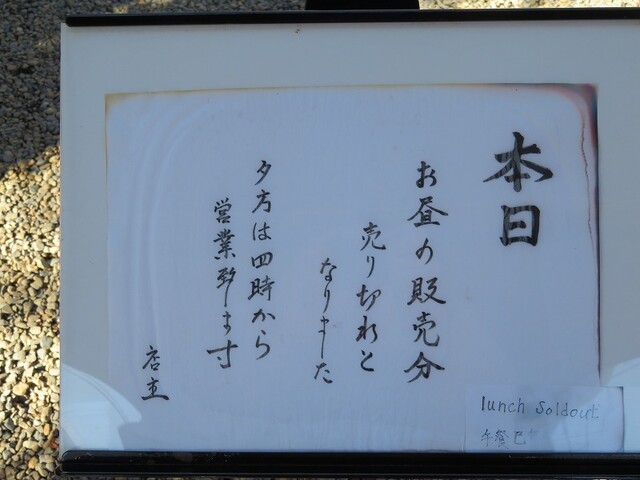 本日
お昼の販売分
売り切れと
なりました
夕方は四時から
営業致します
店主
lunch Soldout
午餐已